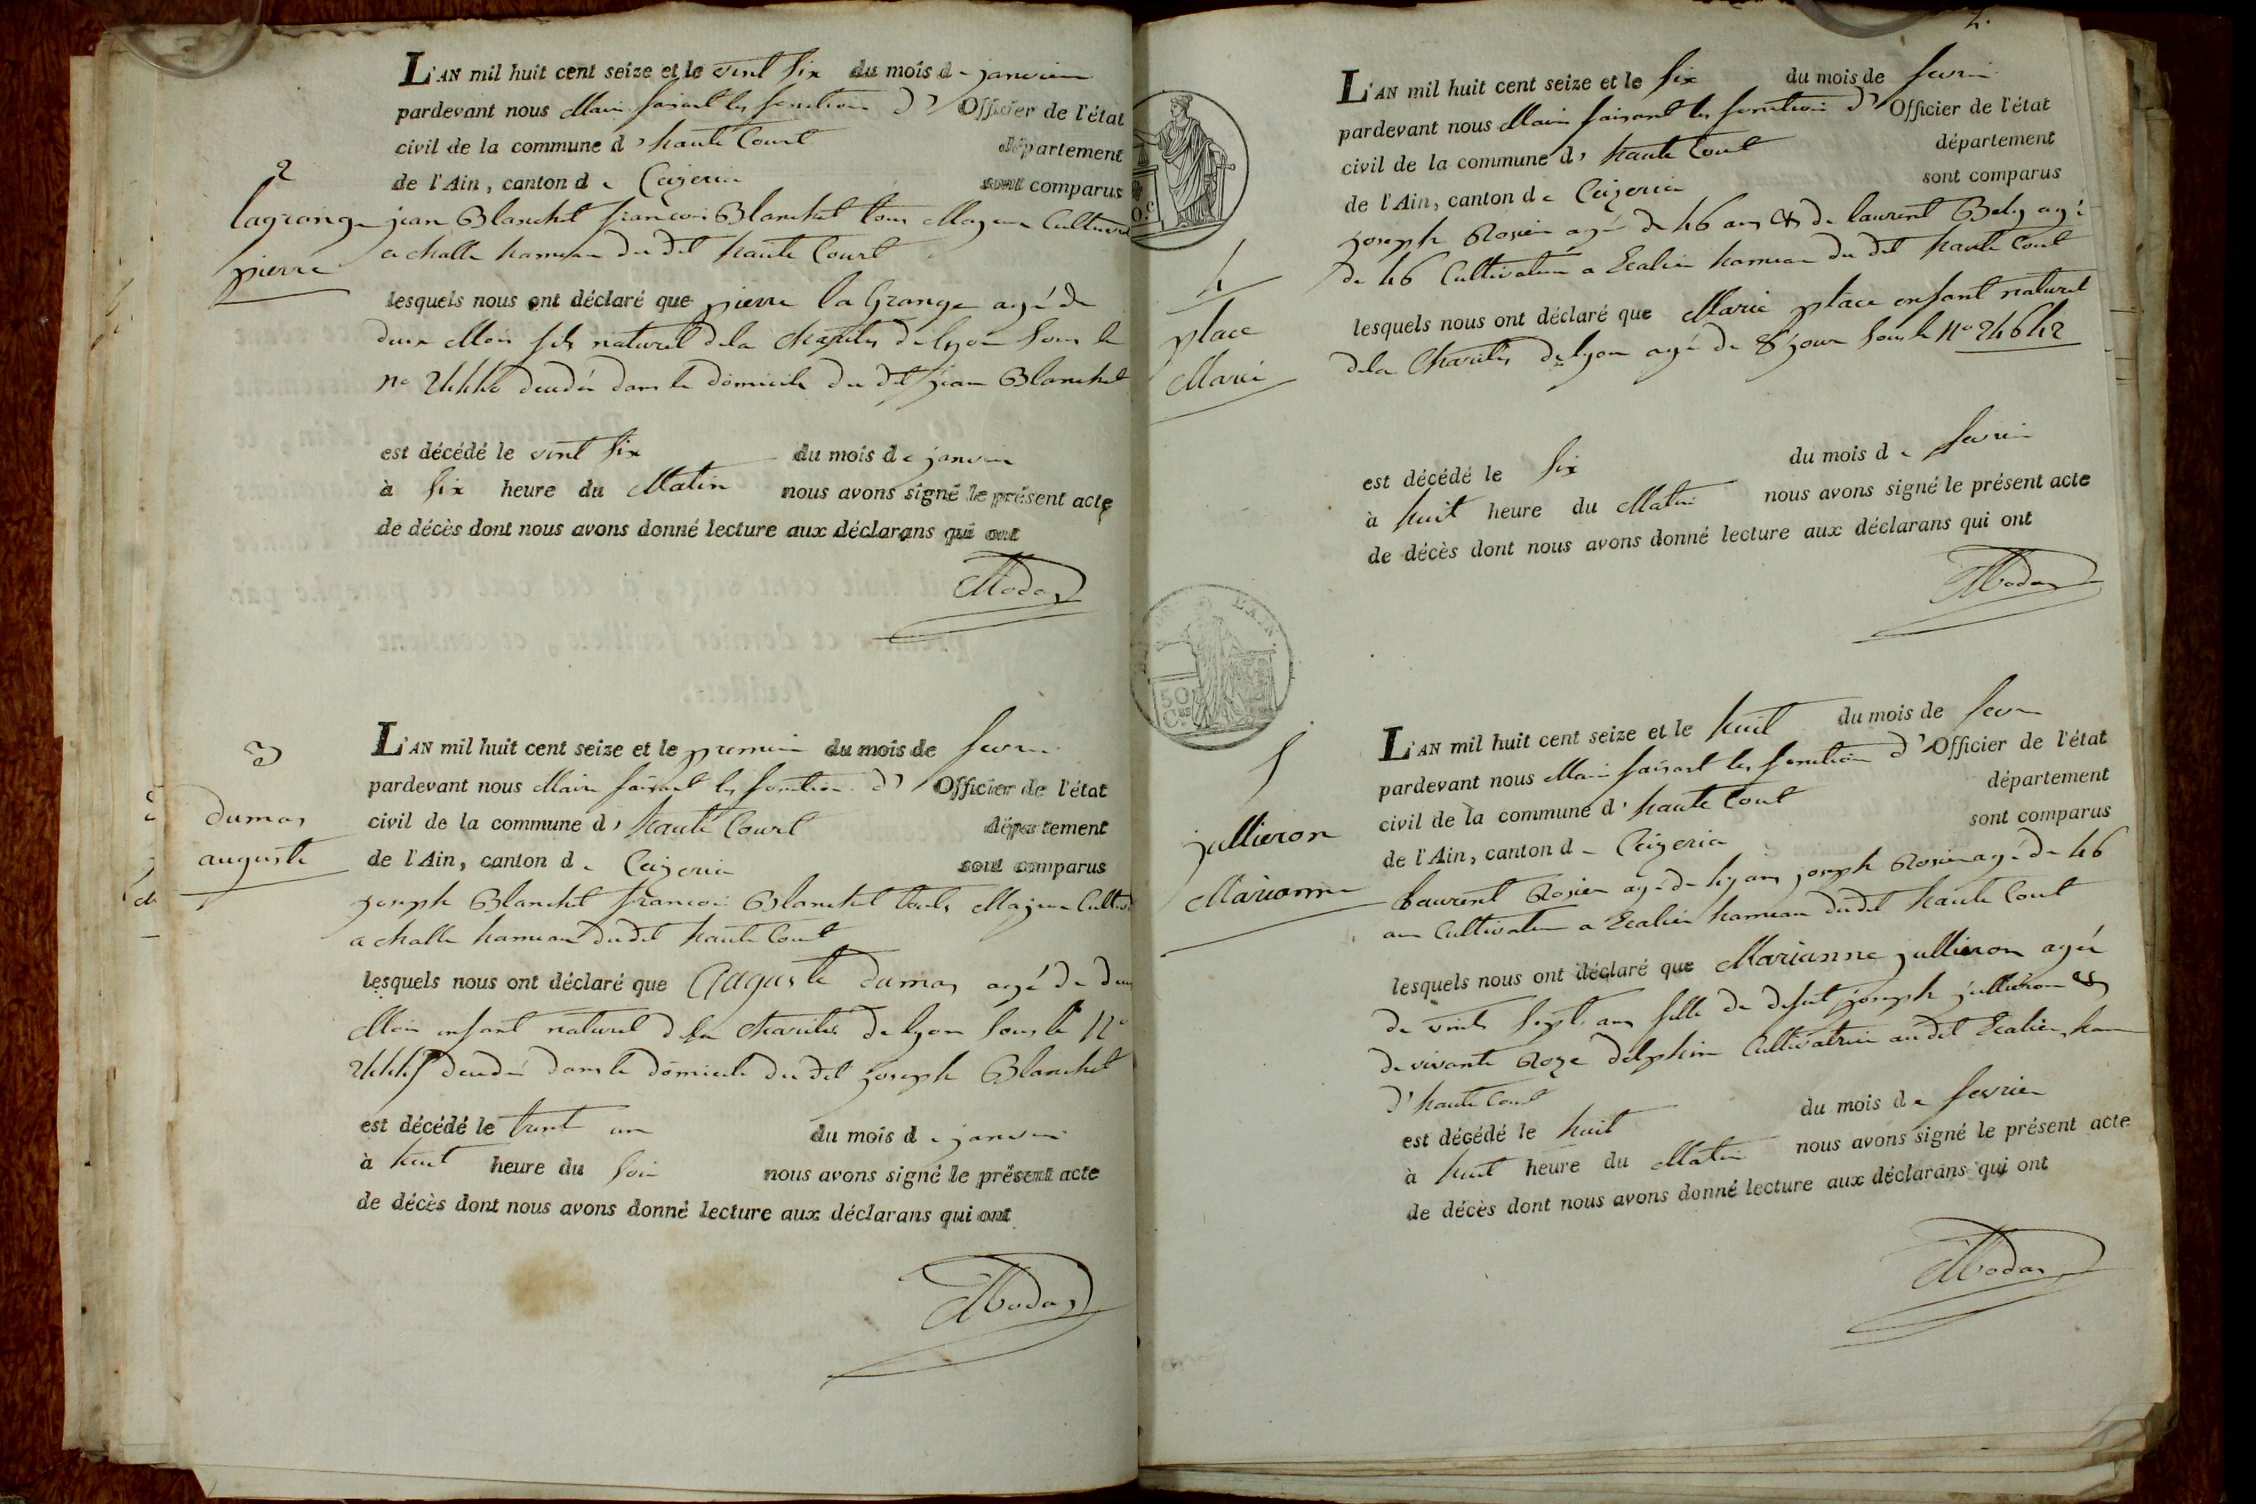 2
lagrange
pierre
L'AN mil huit cent seize et le vint six du mois de janvier
pardevant nous Maire faisant les fonctions d' Officier de l'état
civil de la commune d' haute Court département
de l'Ain, canton de Ceizeria sont comparus
jean Blanchet françois Blanchet tous Majeurs Cultivat
a challe hameau du dit haute Court
lesquels nous ont déclaré que pierre la Grange agé de
deux Mois fils naturel dela charités de lyon sous le
n° deudée dans le domicile du dit jean Blanchet
est décédé le vint six du mois de janvier
à six heure du Matin nous avons signé le présent acte
de décès dont nous avons donné lecture aux déclarans qui ont
3
dumas
auguste
L'AN mil huit cent seize et le premier du mois de fevrier
pardevant nous Maire faisant les fonctions d' Officier de l'état
civil de la commune d' haute Court département
de l'Ain, canton de Ceizeria sont comparus
joseph Blanchet francois Blanchet touts Majeur Cultiv
a challe hameau du dit haute Court
lesquels nous ont déclaré que Auguste dumas agé de deux
Mois enfant naturel dela charités de lyon sous le N°
deudée dans le domicile du dit joseph Blanchet
est décédé le trent un du mois de janvier
à huit heure du soir nous avons signé le présent acte
de décès dont nous avons donné lecture aux déclarans qui ont
4
place
Marie
L'AN mil huit cent seize et le six du mois de fevrier
pardevant nous Maire faisant les fonctions d' Officier de l'état
civil de la commune d' haute Court département
de l'Ain, canton de Ceizeria sont comparus
joseph Rosier agé de 46 ans & de laurent Bely agé
de 46 Cultivateur a hameau du dit haute Court
lesquels nous ont déclaré que Marie place enfant naturel
dela Charités de lyon agé de 8 jour sous le N° 24642
est décédé le six du mois de fevrier
à huit heure du Matin nous avons signé le présent acte
de décès dont nous avons donné lecture aux déclarans qui ont
50
5
jullieron
Marianne
L'AN mil huit cent seize et le huit du mois de fevr
pardevant nous Maire faisant les fonctions d' Officier de l'état
civil de la commune d' haute Court département
de l'Ain, canton de Ceizeria sont comparus
Laurent Rosier agé de ans joseph Rosier agé de 46
ans Cultivateur a hameau du dit haute Court
lesquels nous ont déclaré que Marianne jullieron agée
de vints sept ans fille de defunt joseph jullieron &
de vivante Roze delphin Cultivatrice au dit ham
d'haute Court
est décédé le huit du mois de fevrier
à huit heure du Matin nous avons signé le présent acte
de décès dont nous avons donné lecture aux déclarans qui ont